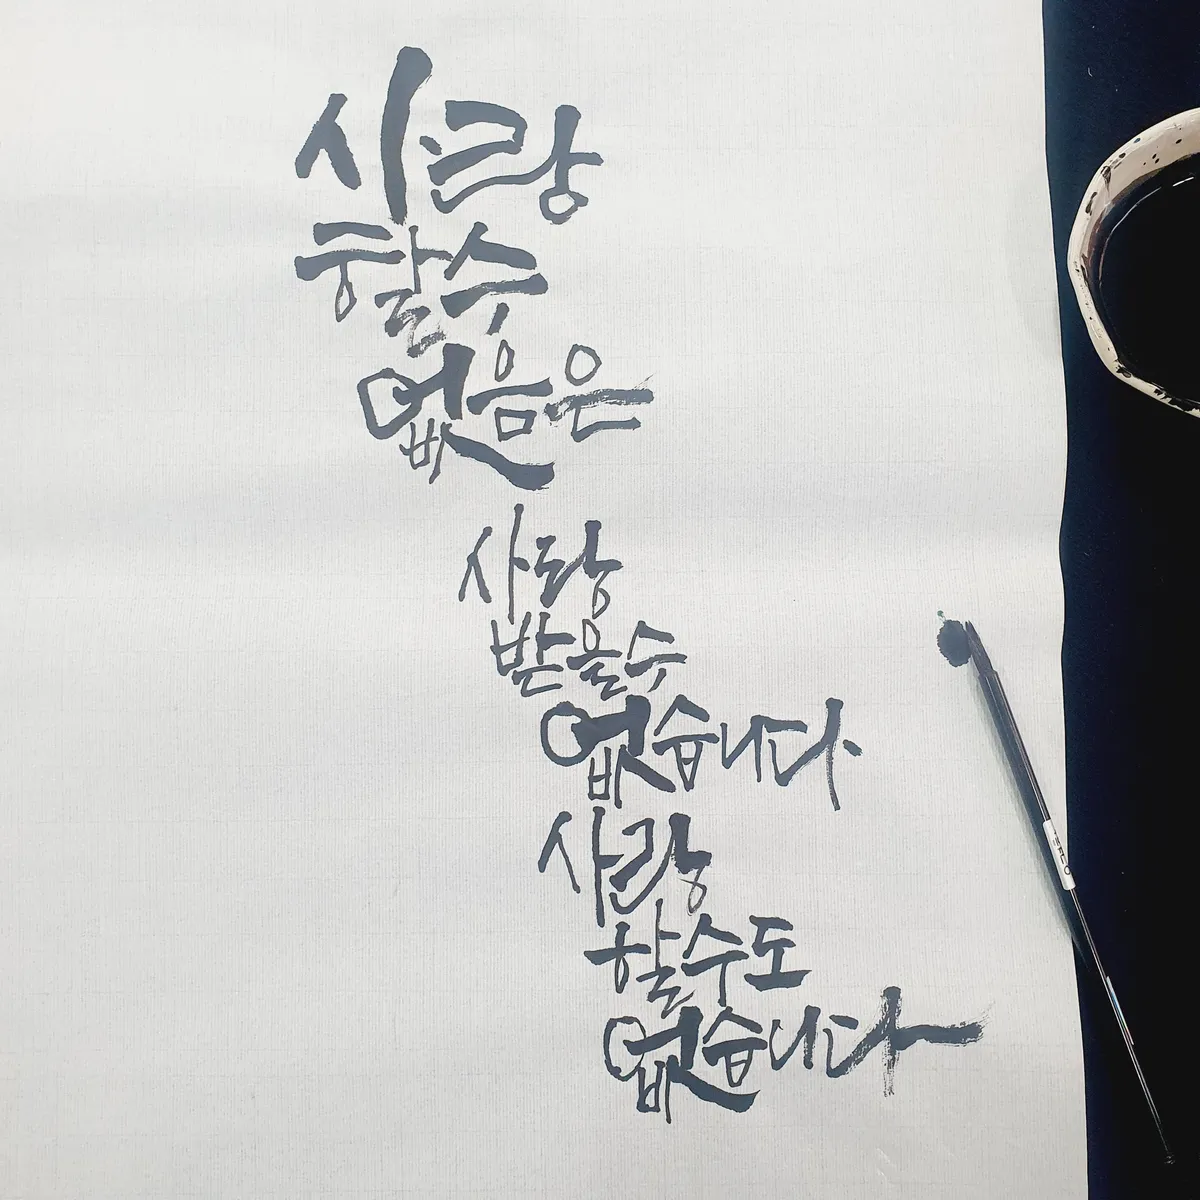 사랑
할수
없음은
사랑
받을수
없습니다
사랑
할수도
없습니다